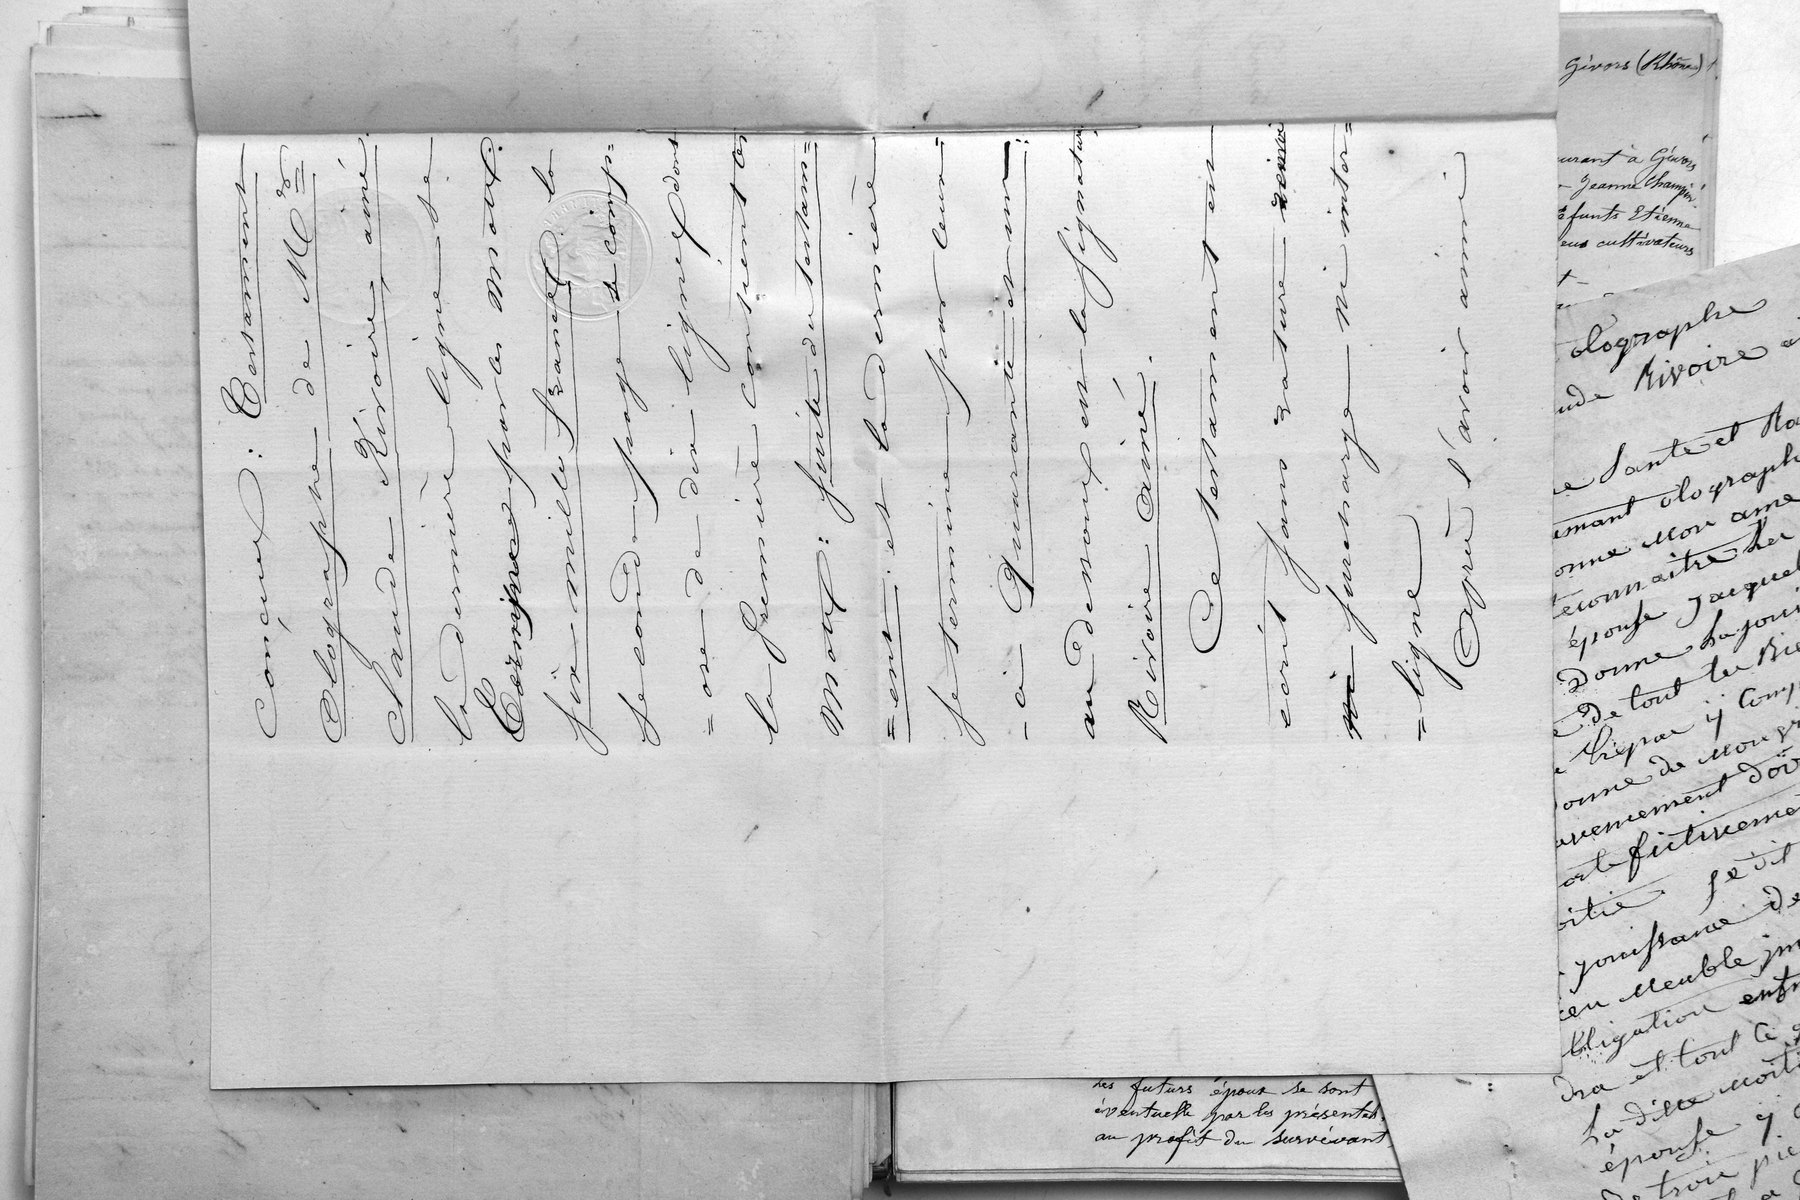 conçus : Testament
Olographe de M.r
Claude Rivoire, aîné
la dernière ligne se
Termine par les mots:
six mille francs, la
seconde page se comp=
=ose de dix lignes dont
la première contient les
mots: suite du testam=
=ent. et la dernière
se termine par ceux=
-ci Quarante et un:
au dessous est la signature,
Rivoire Aîné.
Ce testament est
écrit sans rature
ni surcharge ni inter=
=ligne
Après l'avoir ainsi
Givors (Rhône)
à Givors
Jeanne Champin
Etienne
cultivateurs
olographe
Rivoire
Santé et
olographe
Mon
reconnaitre
épouse Jacque
Donne La joui
De tout les Bie
y Comp
onne de Mon
fictiveme
Se dit
jouissance de
Meuble
et tout Ce
La ditte Moiti
épouse y
trois
Les futurs époux se sont
éventuelle par les présentes
au profit du survivant